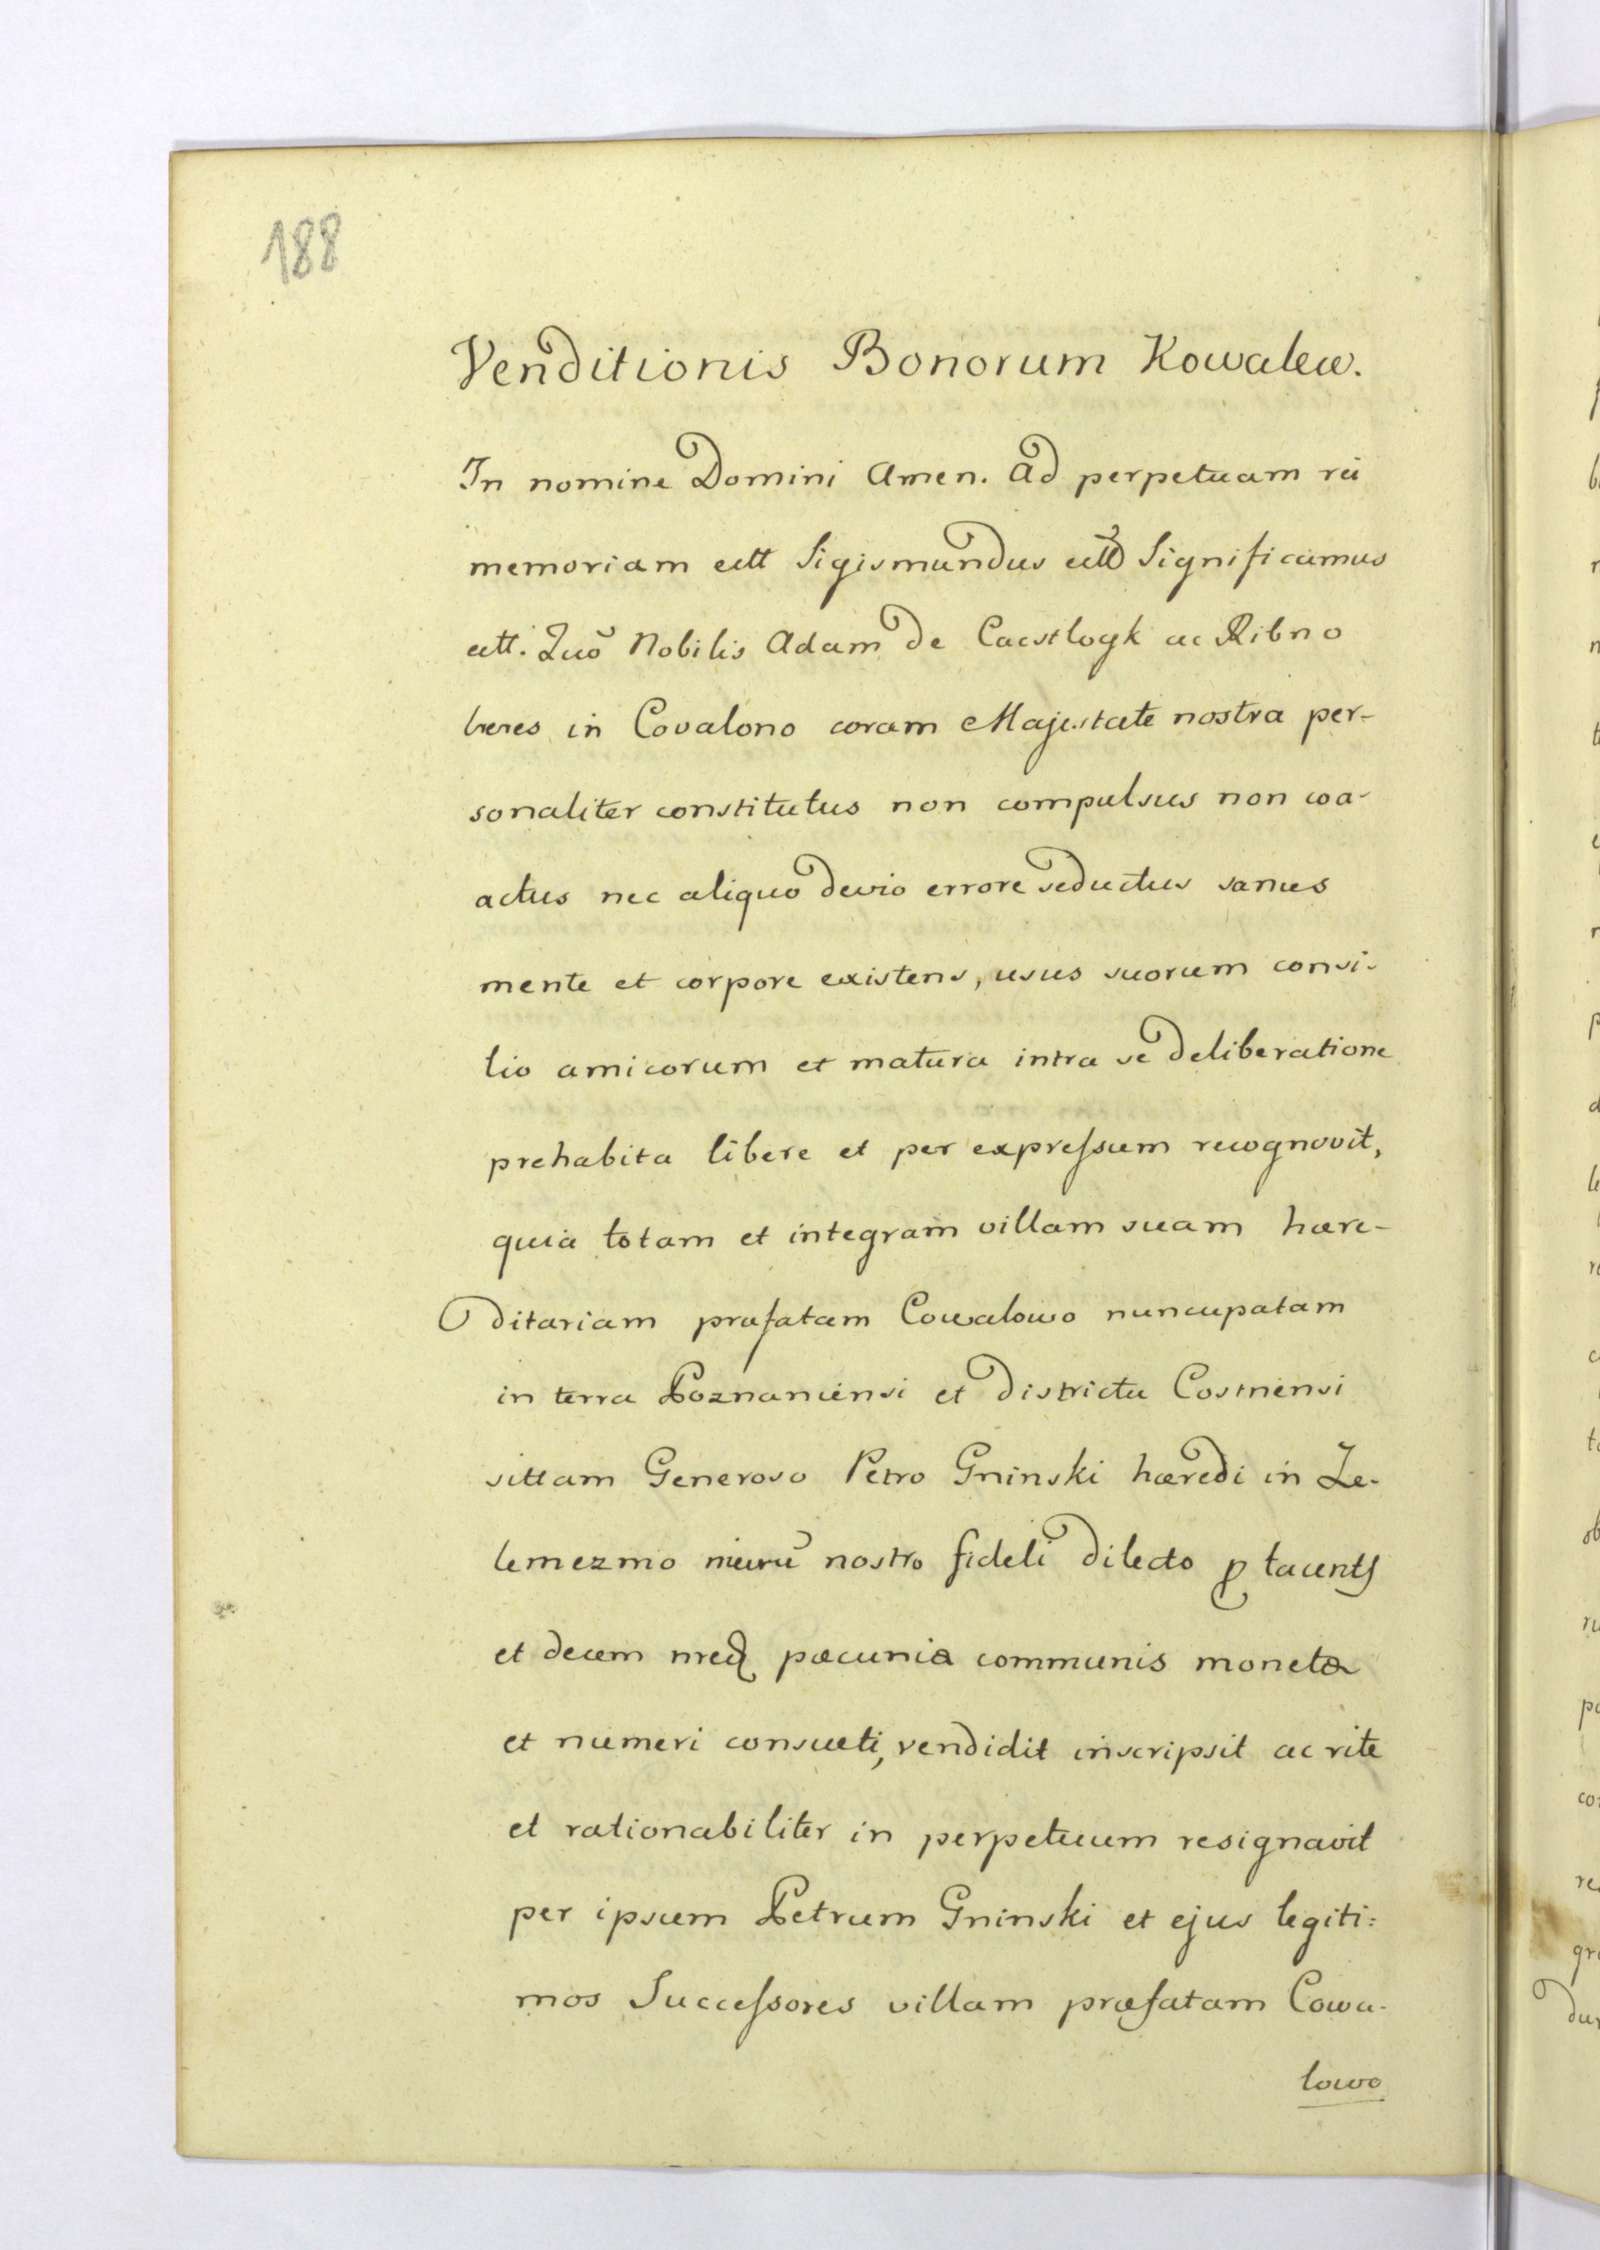 188
Venditionis Bonorum Kowalew.
In nomine Domini Amen. Ad perpetuam rei
memoriam ett Sigismundus ett Significamus
ett. Quō Nobilis Adam de Cacstlogk ac Ribno
heres in Covalono coram Majestate nostra per-
sonaliter constitutus non compulsus non coa-
actus nec aliquo devio errore seductus sanus
mente et corpore existens, usus suorum consi-
lio amicorum et matura intra se deliberatione
prehabita libere et per expressum recognovit,
quia totam et integram villam suam hære-
ditariam præfatam Cowalowo nuncupatam
in terra Poznaniensi et districtu Costnensi
sittam Generoso Petro Gninski hæredi in Ze-
lemezmo nostro fideli dilecto
et decem pæcunia communis moneta
et numeri consueti, vendidit inscripsit ac rite
et rationabiliter in perpetuum resignavit
per ipsum Petrum Gninski et ejus legiti:
mos Successores villam præfatam Cowa-
lowo